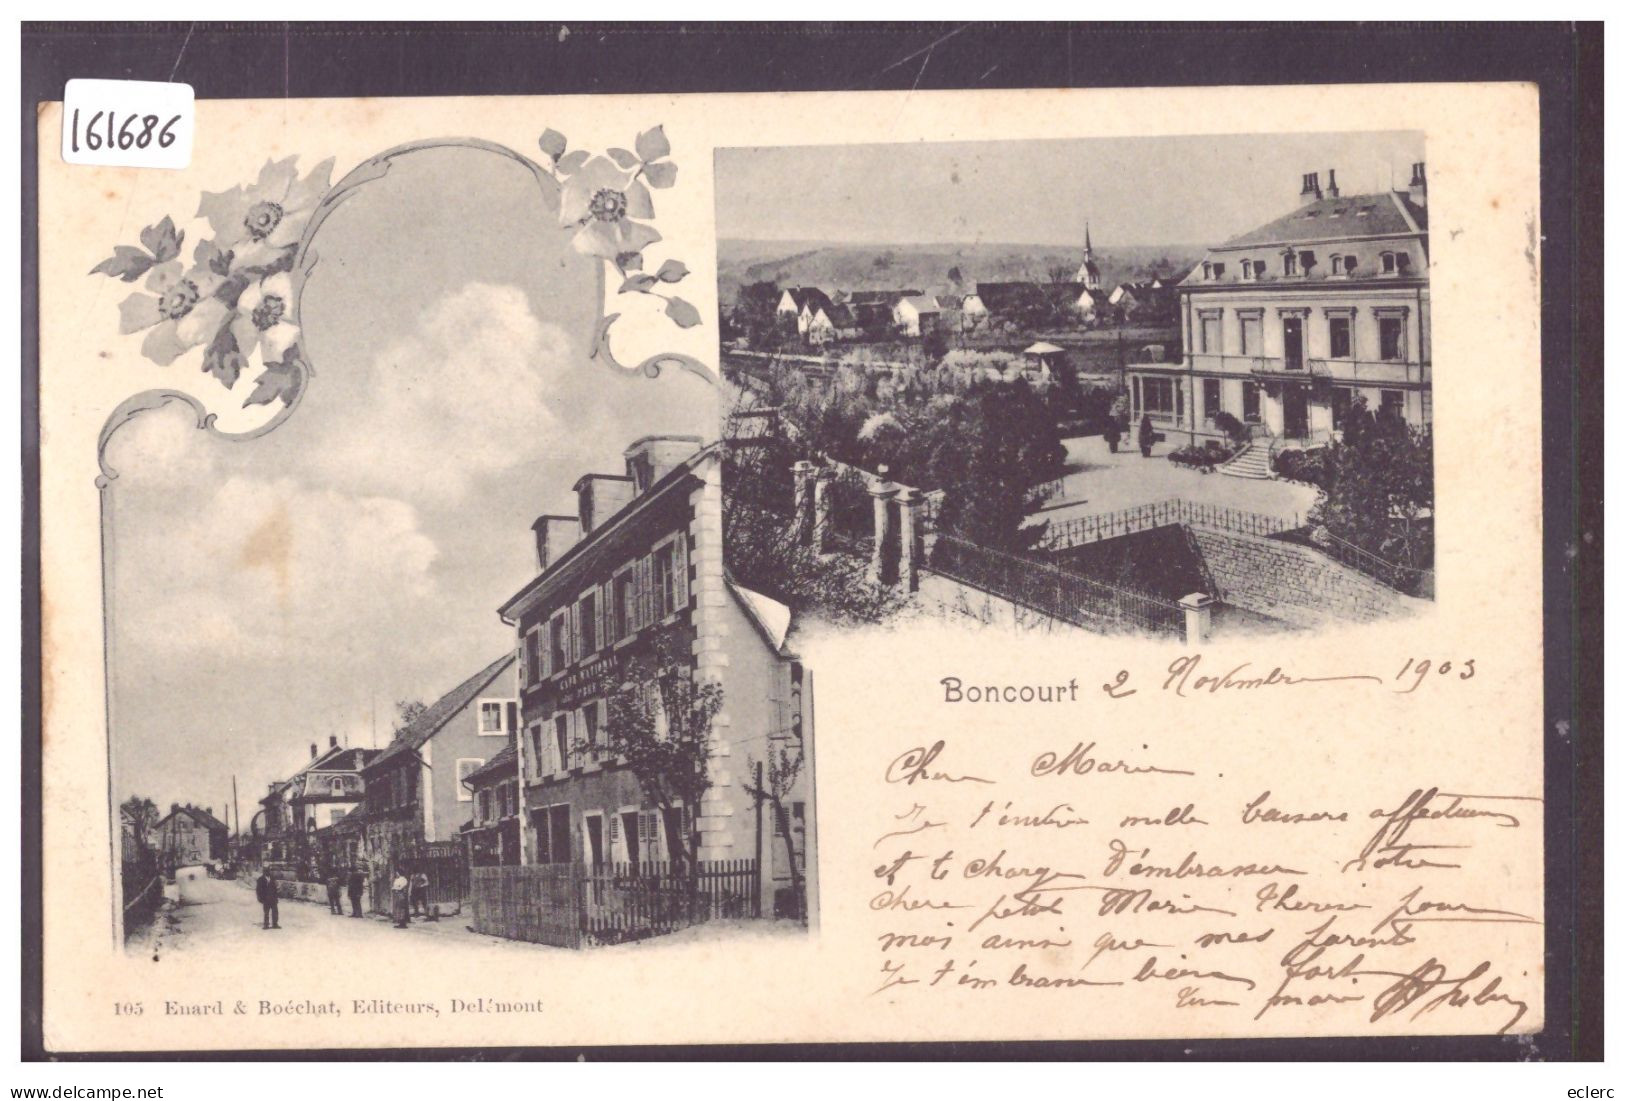 161686
CAFÉ NATIONAL
Boncourt 2 Novembre 1903
Chere Marie.
Je t'envoie mille baisers affectueux
et te charge d'embrasser notre
chere petite Marie Therese pour
moi ainsi que mes parents
Je t'embrasse bien fort
Ton mari
105 Enard & Boéchat, Editeurs, Delémont
eclerc